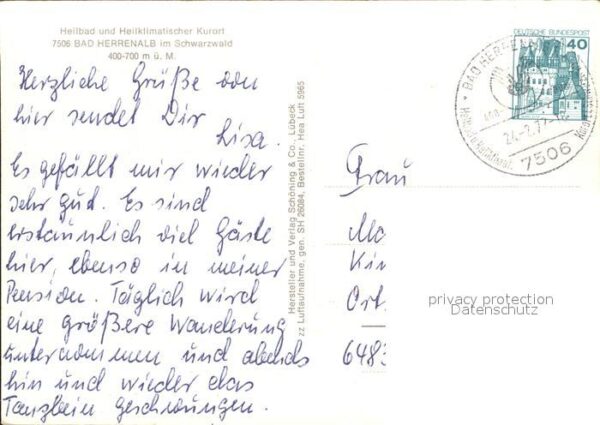 Heilbad und Heilklimatischer Kurort
7506 BAD HERRENALB im Schwarzwald
400-700 m ü. M.
Herzliche Grüße von
hier sendet Dir
Lisa.
Es gefällt mir wieder
sehr gut. Es sind
erstaunlich viel Gäste
hier, ebenso in meiner
Pension. Täglich wird
eine größere Wanderung
unternommen und abends
hin und wieder das
Tanzbein geschwungen.
Hersteller und Verlag Schöning & Co., Lübeck
zz Luftaufnahme, gen. SH 26084, Bestellnr. Hea Luft 5965
DEUTSCHE BUNDESPOST
40
BAD HERRENAL
7506
Frau
Ma
Kin
Ort.
6483
privacy protection
Datenschutz